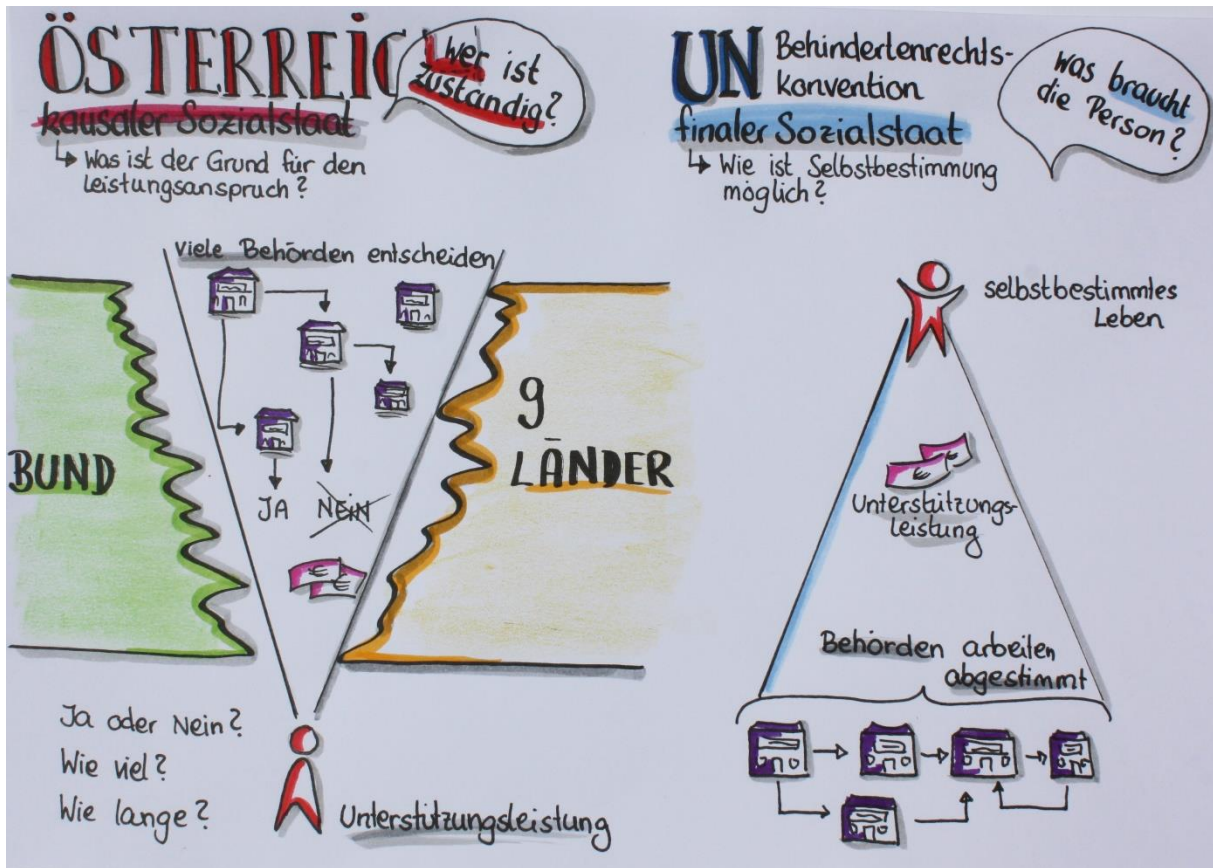 ÖSTERREICH
wer ist
zuständig?
kausaler Sozialstaat
↳ Was ist der Grund für den
Leistungsanspruch?
viele Behörden entscheiden
BUND
9
LÄNDER
JA NEIN
€ €
Ja oder Nein?
Wie viel?
Wie lange?
Unterstützungsleistung
UN Behindertenrechts-
konvention
was braucht
die Person?
finaler Sozialstaat
↳ Wie ist Selbstbestimmung
möglich?
selbstbestimmtes
Leben
€ €
Unterstützungs-
leistung
Behörden arbeiten
abgestimmt